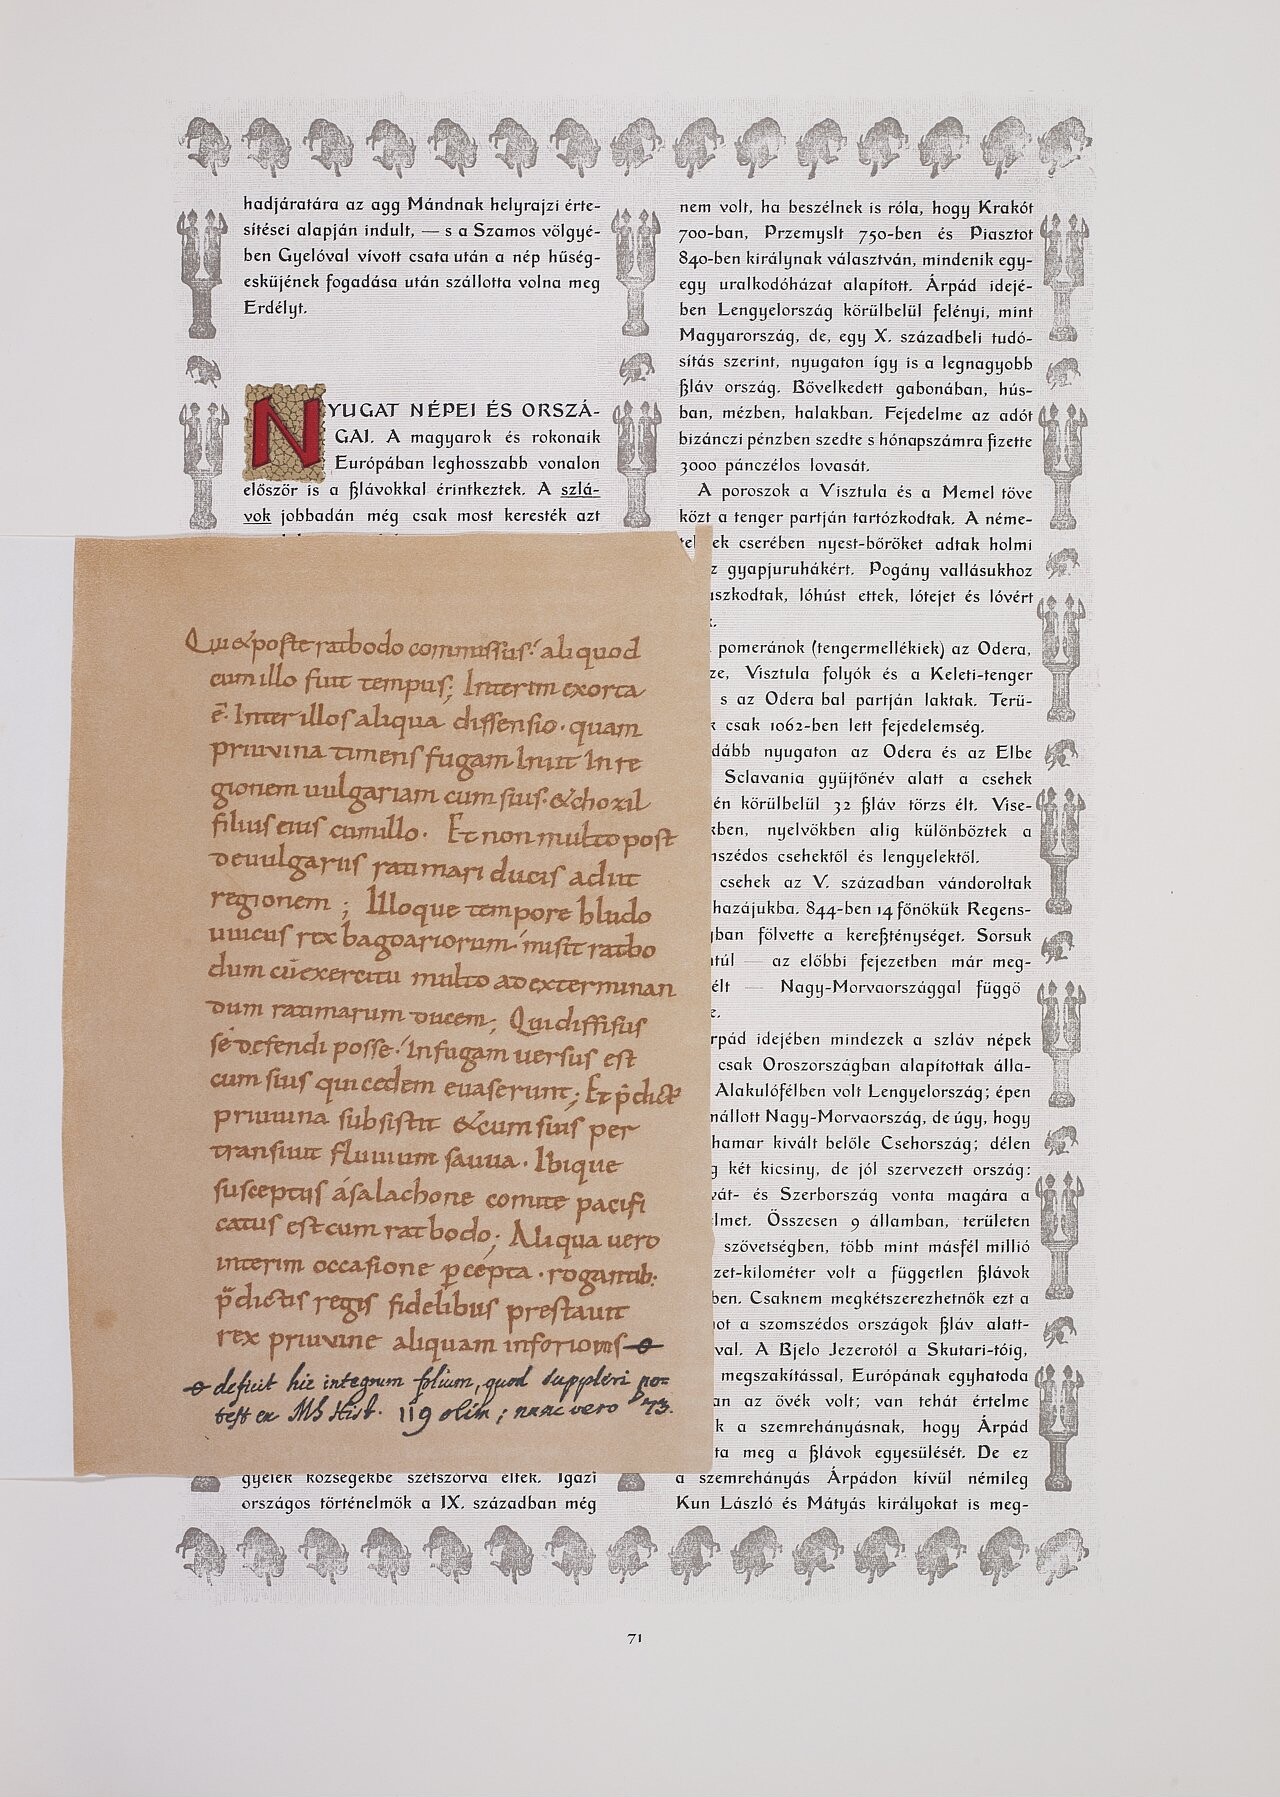 hadjáratára az agg Mándnak helyrajzi érte-
sítései alapján indult, — s a Szamos völgyé-
ben Gyelóval vívott csata után a nép hűség-
esküjének fogadása után szállotta volna meg
Erdélyt.
NYUGAT NÉPEI ÉS ORSZÁ-
GAI. A magyarok és rokonaik
Európában leghosszabb vonalon
először is a szlávokkal érintkeztek. A szlá-
vok jobbadán még csak most keresték azt
Qui & poste ratbodo commissus. aliquod
cum illo fuit tempus; Interim exorta
ē. Inter illos aliqua dissensio. quam
priuuina timens fugam Iniit In re
gionem uulgariam cum suis. & chozil
filius eius cum illo. Et non multo post
de uulgariis ratimari ducis adiit
regionem; Illoque tempore hludo
uuicus rex bagoariorum. misit ratbo
dum cū exercitu multo ad exterminan
dum ratimarum ducem; Qui diffisus
se defendi posse. In fugam uersus est
cum suis qui cedem euaserunt; Et p̄dict
priuuina substitit & cum suis per
transiuit fluuium sauua. Ibique
susceptus á salachone comite pacifi
catus est cum ratbodo; Aliqua uero
interim occasione pcepta. rogantib:
p̄dictis regis fidelibus prestauit
rex priuuine aliquam inferioris
deficit hic integrum folium, quod suppleri po-
test ex MS Hist. 119 olim; nunc vero 73.
gyelek községekbe szétszórva éltek. Igazi
országos történelmök a IX. században még
nem volt, ha beszélnek is róla, hogy Krakót
700-ban, Przemyslt 750-ben és Piasztot
840-ben királynak választván, mindenik egy-
egy uralkodóházat alapított. Árpád idejé-
ben Lengyelország körülbelül felényi, mint
Magyarország, de, egy X. századbeli tudó-
sítás szerint, nyugaton így is a legnagyobb
szláv ország. Bővelkedett gabonában, hús-
ban, mézben, halakban. Fejedelme az adót
bizánczi pénzben szedte s hónapszámra fizette
3000 pánczélos lovasát.
A poroszok a Visztula és a Memel töve
közt a tenger partján tartózkodtak. A néme-
tek cserében nyest-bőröket adtak holmi
z gyapjuruhákért. Pogány vallásukhoz
szkodtak, lóhúst ettek, lótejet és lóvért
pomeránok (tengermellékiek) az Odera,
ze, Visztula folyók és a Keleti-tenger
s az Odera bal partján laktak. Terü-
k csak 1062-ben lett fejedelemség.
dább nyugaton az Odera és az Elbe
Sclavania gyüjtőnév alatt a csehek
én körülbelül 32 szláv törzs élt. Vise-
kben, nyelvökben alig különböztek a
mszédos csehektől és lengyelektől.
csehek az V. században vándoroltak
hazájukba. 844-ben 14 főnökük Regens-
gban fölvette a kereszténységet. Sorsuk
ntúl — az előbbi fejezetben már meg-
élt — Nagy-Morvaországgal függö
e.
rpád idejében mindezek a szláv népek
csak Oroszországban alapítottak álla-
Alakulófélben volt Lengyelország; épen
nállott Nagy-Morvaország, de úgy, hogy
hamar kivált belőle Csehország; délen
g két kicsiny, de jól szervezett ország:
vát- és Szerbország vonta magára a
elmet. Összesen 9 államban, területen
szövetségben, több mint másfél millió
zet-kilométer volt a független szlávok
ben. Csaknem megkétszerezhetnők ezt a
ot a szomszédos országok szláv alatt-
val. A Bjelo Jezerotól a Skutari-tóig,
megszakítással, Európának egyhatoda
an az övék volt; van tehát értelme
k a szemrehányásnak, hogy Árpád
ta meg a szlávok egyesülését. De ez
a szemrehányás Árpádon kívül némileg
Kun László és Mátyás királyokat is meg-
71